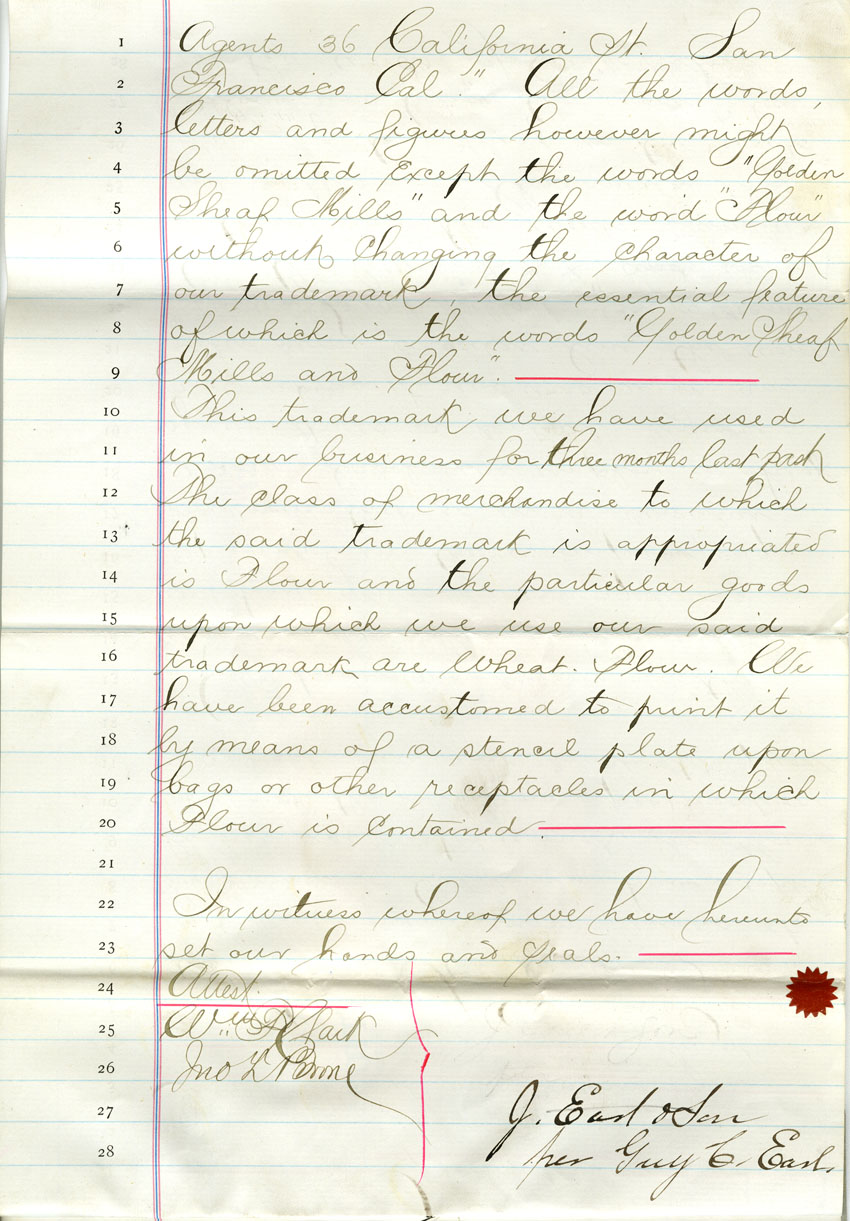 1 Agents 36 California St. San
2 Francisco Cal." All the words,
3 letters and figures however might
4 be omitted except the words "Golden
5 Sheaf Mills" and the word "Flour"
6 without changing the character of
7 our trademark, the essential feature
8 of which is the words "Golden Sheaf
9 Mills and Flour".
10 This trademark we have used
11 in our business for three months last past
12 The class of merchandise to which
13 the said trademark is appropriated
14 is Flour and the particular goods
15 upon which we use our said
16 trademark are Wheat. Flour. We
17 have been accustomed to print it
18 by means of a stencil plate upon
19 bags or other receptacles in which
20 Flour is contained.
21
22 In witness whereof we have hereunto
23 set our hands and seals.
24 Attest.
25 Wm F. Clark
26 Jno L. Boone
27 J. Earl & Son
28 per Guy C. Earl.